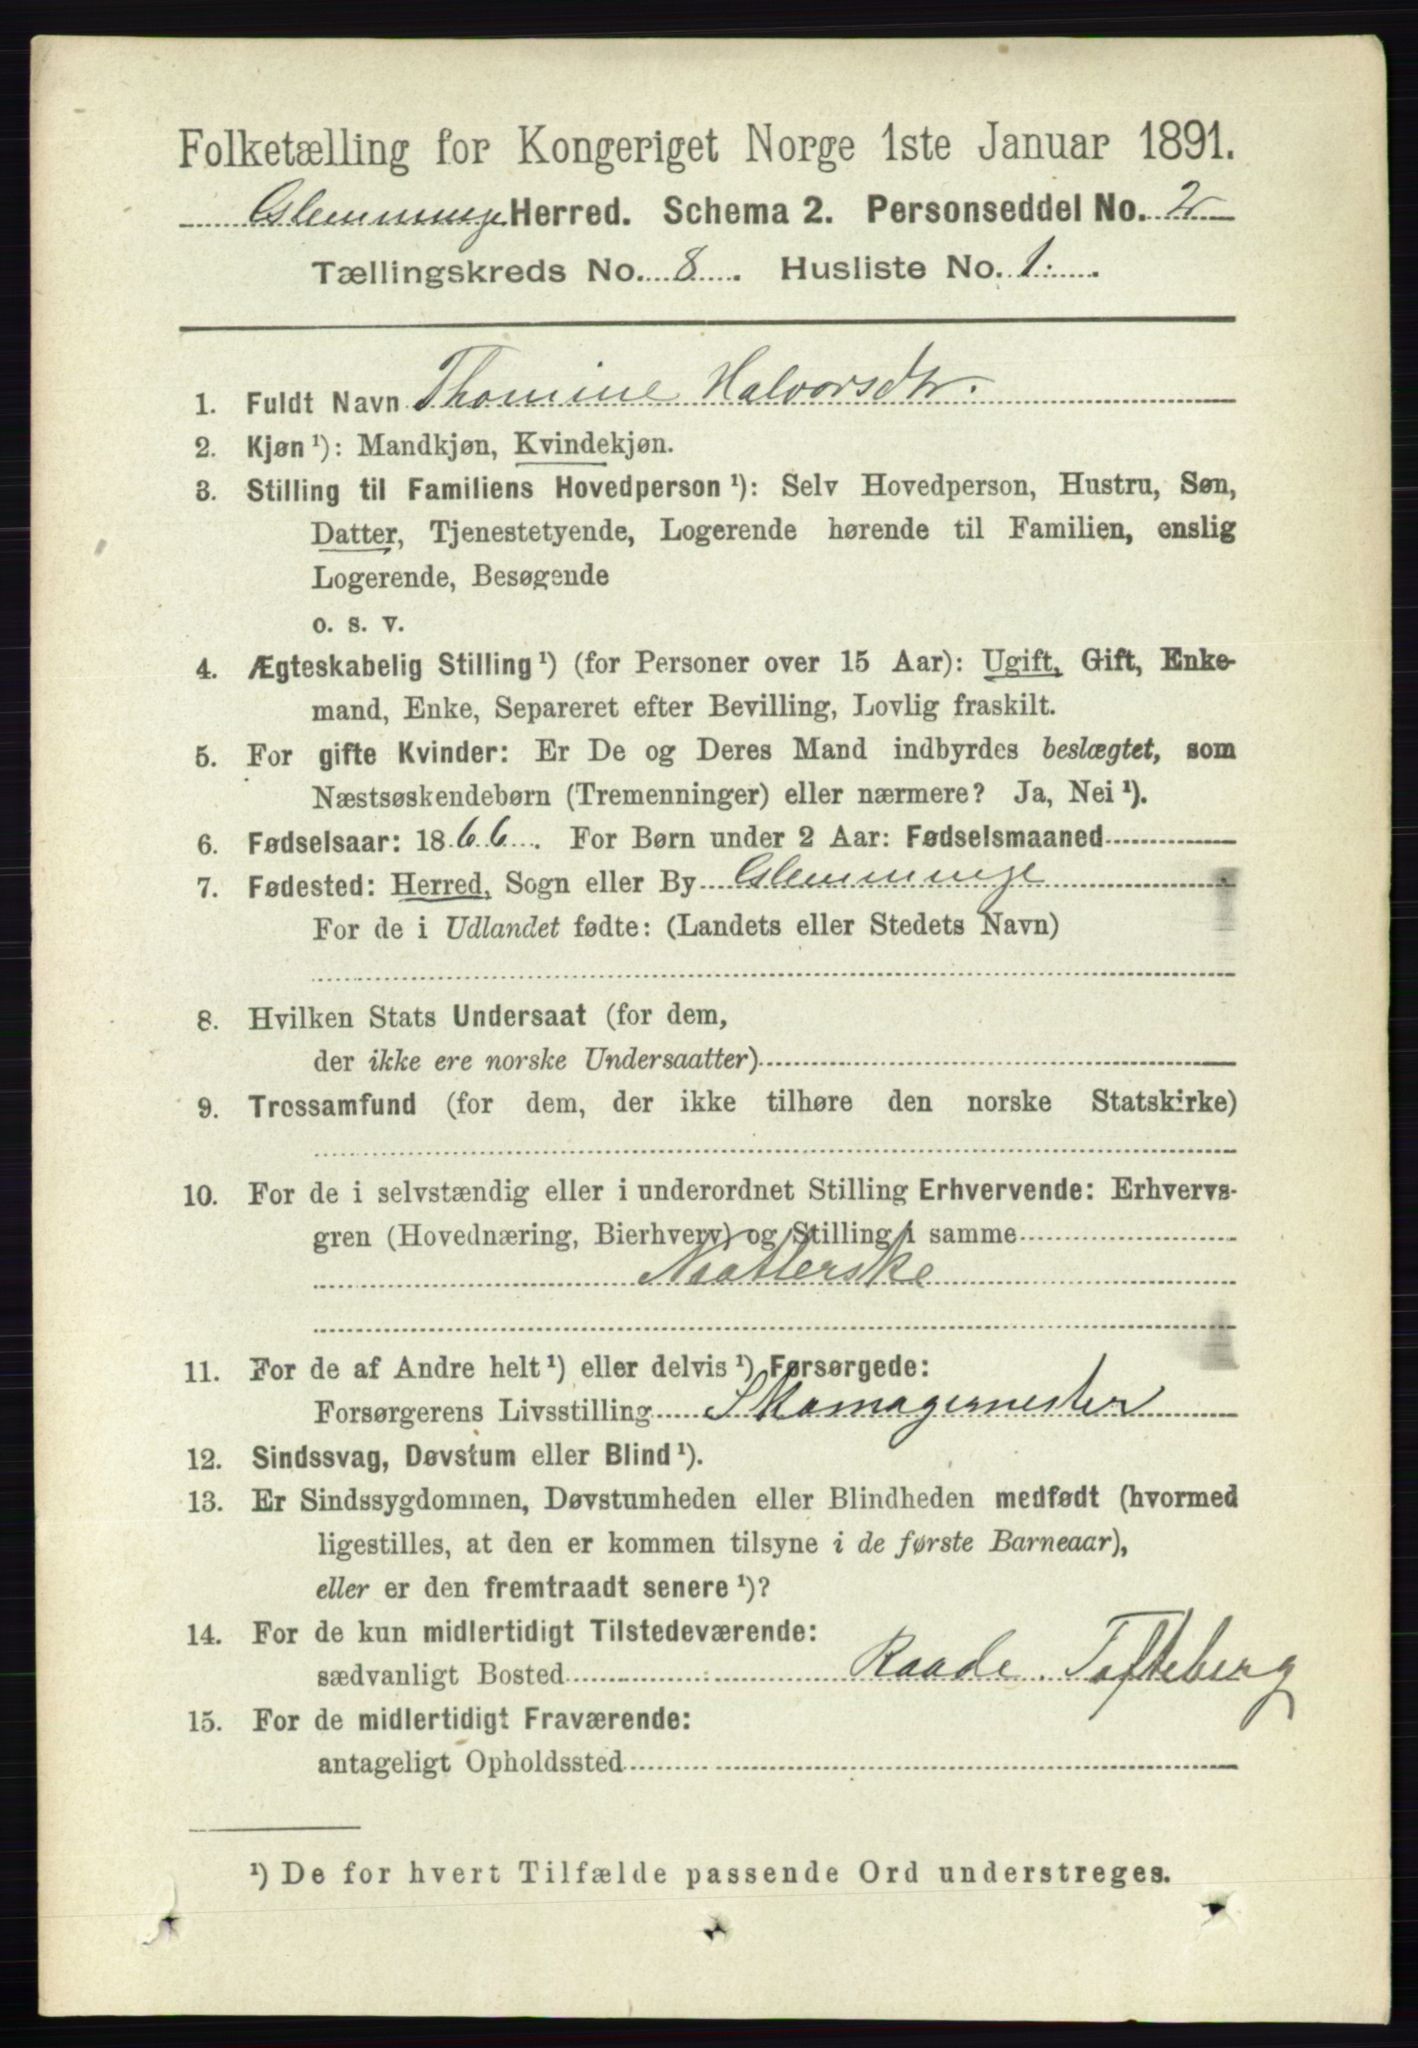 Folketælling for Kongeriget Norge 1ste Januar 1891.
Glemminge Herred. Schema 2. Personseddel No. 2
Tællingskreds No. 8. Husliste No. 1.
1. Fuldt Navn Thomine Halvorsdtr.
2. Kjøn¹): Mandkjøn, Kvindekjøn.
3. Stilling til Familiens Hovedperson¹): Selv Hovedperson, Hustru, Søn,
Datter, Tjenestetyende, Logerende hørende til Familien, enslig
Logerende, Besøgende
o. s. v.
4. Ægteskabelig Stilling¹) (for Personer over 15 Aar): Ugift, Gift, Enke-
mand, Enke, Separeret efter Bevilling, Lovlig fraskilt.
5. For gifte Kvinder: Er De og Deres Mand indbyrdes beslægtet, som
Næstsøskendebørn (Tremenninger) eller nærmere? Ja, Nei¹).
6. Fødselsaar: 1866. For Børn under 2 Aar: Fødselsmaaned
7. Fødested: Herred, Sogn eller By Glemminge
For de i Udlandet fødte: (Landets eller Stedets Navn)
8. Hvilken Stats Undersaat (for dem,
der ikke ere norske Undersaatter)
9. Trossamfund (for dem, der ikke tilhøre den norske Statskirke)
10. For de i selvstændig eller i underordnet Stilling Erhvervende: Erhvervs-
gren (Hovednæring, Bierhverv) og Stilling i samme
Naatlerske
11. For de af Andre helt¹) eller delvis¹) Forsørgede:
Forsørgerens Livsstilling Skomagermester
12. Sindssvag, Døvstum eller Blind¹).
13. Er Sindssygdommen, Døvstumheden eller Blindheden medfødt (hvormed
ligestilles, at den er kommen tilsyne i de første Barneaar),
eller er den fremtraadt senere¹)?
14. For de kun midlertidigt Tilstedeværende:
sædvanligt Bosted Raade. Tofteberg
15. For de midlertidigt Fraværende:
antageligt Opholdssted
¹) De for hvert Tilfælde passende Ord understreges.